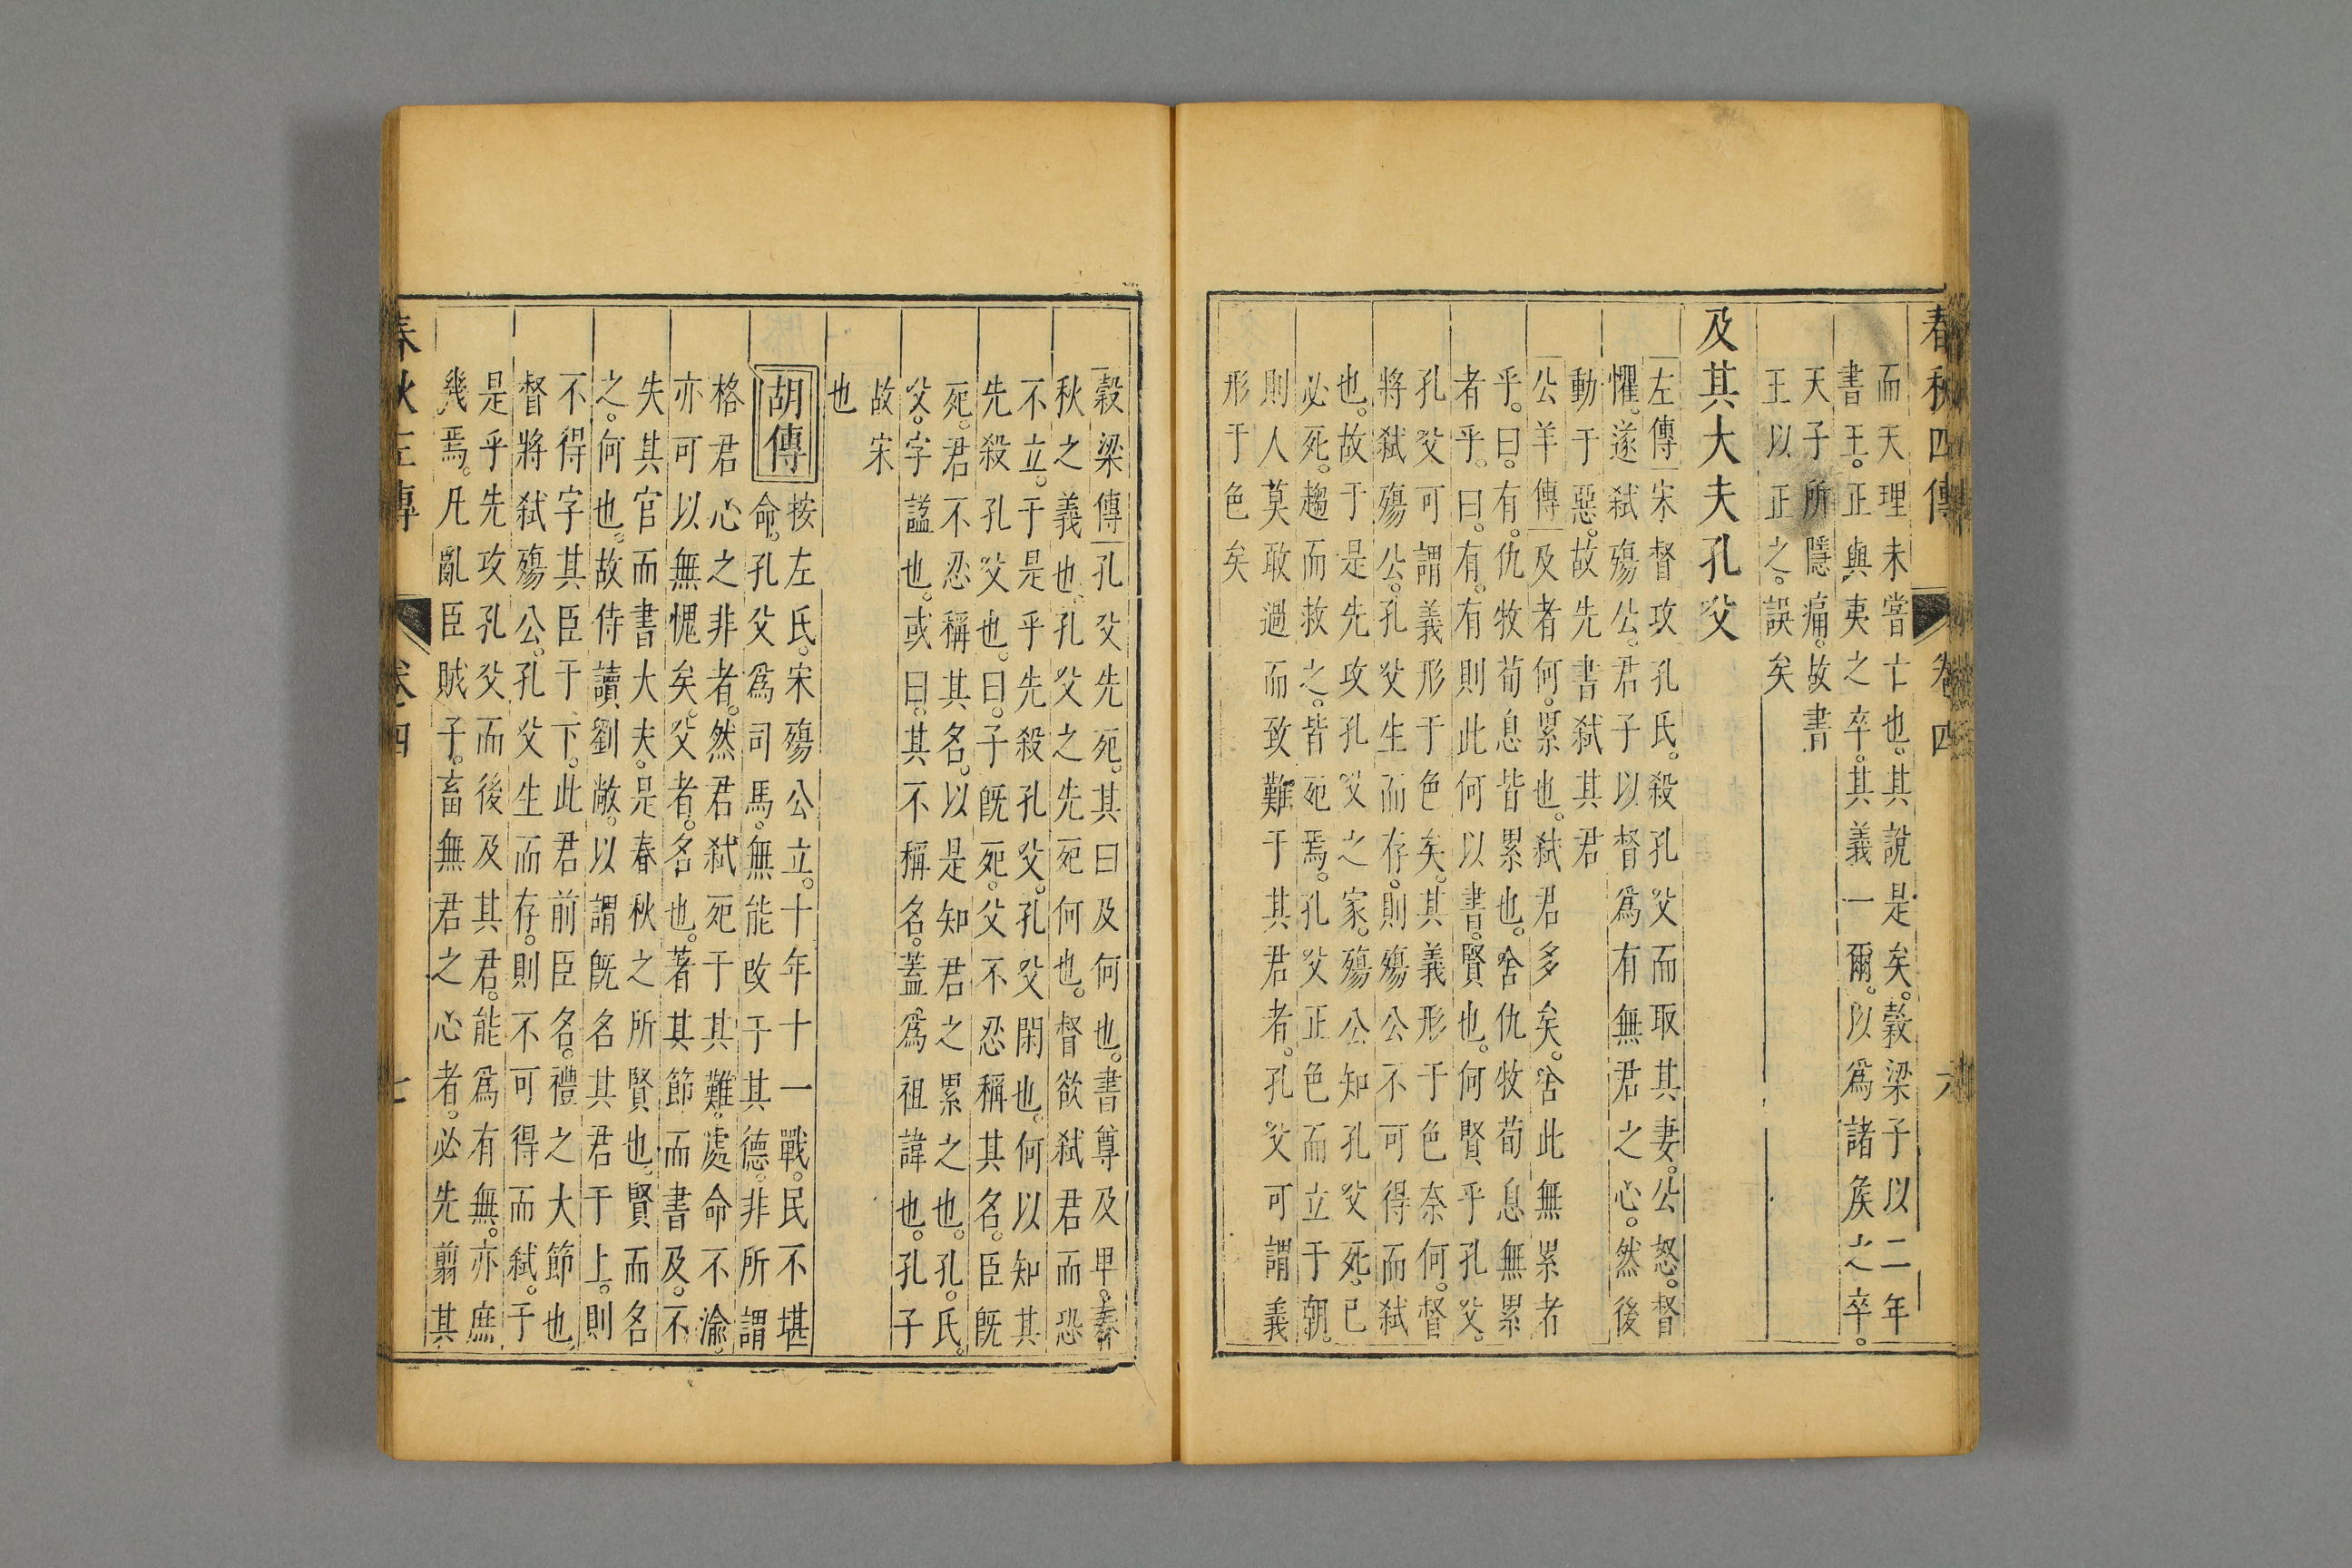 春秋四傳 卷四 六
而天理未嘗亡也。其說是矣。穀梁子以二年
書王。正與夷之卒。其義一爾。以爲諸矦之卒。
天子所隱痛。故書
王以正之。誤矣
及其大夫孔父
左傳宋督攻孔氏。殺孔父而取其妻。公怒。督
懼。遂弒殤公。君子以督爲有無君之心。然後
動于惡。故先書弒其君
公羊傳及者何。累也。弒君多矣。舍此無累者
乎。曰。有。仇牧荀息皆累也。舍仇牧荀息無累
者乎。曰。有。有則此何以書。賢也。何賢乎孔父。
孔父可謂義形于色矣。其義形于色奈何。督
將弒殤公。孔父生而存。則殤公不可得而弒
也。故于是先攻孔父之家。殤公知孔父死。已
必死。趨而救之。皆死焉。孔父正色而立于朝。
則人莫敢過而致難于其君者。孔父可謂義
形于色矣
穀梁傳孔父先死。其曰及何也。書尊及卑。春
秋之義也。孔父之先死何也。督欲弒君而恐
不立。于是乎先殺孔父。孔父閑也。何以知其
先殺孔父也。曰。子旣死。父不忍稱其名。臣旣
死。君不忍稱其名。以是知君之累之也。孔。氏。
父。字謚也。或曰。其不稱名。蓋爲祖諱也。孔子
故宋
也
胡傳按左氏。宋殤公立。十年十一戰。民不堪
命。孔父爲司馬。無能改于其德。非所謂
格君心之非者。然君弒死于其難。處命不渝。
亦可以無愧矣。父者。名也。著其節而書及。不
失其官而書大夫。是春秋之所賢也。賢而名
之。何也。故侍讀劉敞。以謂旣名其君于上。則
不得字其臣于下。此君前臣名。禮之大節也。
督將弒殤公。孔父生而存。則不可得而弒。于
是乎先攻孔父而後及其君。能爲有無。亦庶
幾焉。凡亂臣賊子。畜無君之心者。必先翦其
春秋左傳 卷四 七